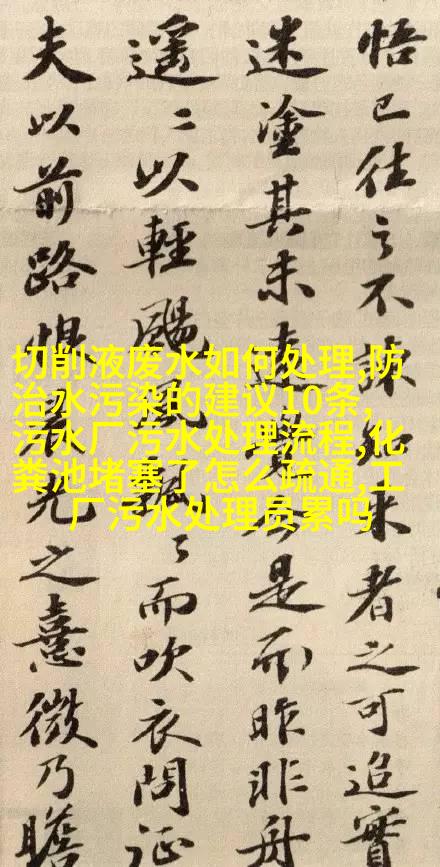 悟已往之不諫知来者之可追實
迷塗其未遠覺是而昨非舟
遥〻以輕颺風飄〻而吹衣問征
夫以前路恨晨光之熹微乃瞻
切削液废水如何处理,防
治水污染的建议10条,
污水厂污水处理流程,化
粪池堵塞了怎么疏通,工
厂污水处理员累吗